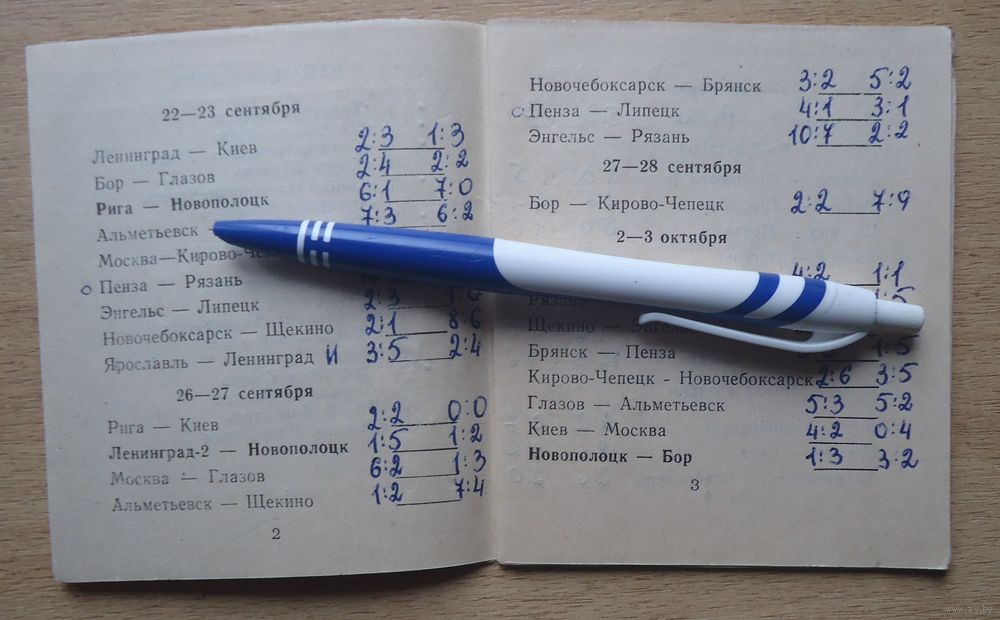 22—23 сентября
Ленинград — Киев 2:3 1:3
Бор — Глазов 2:4 2:2
Рига — Новополоцк 6:1 7:0
Альметьевск — 7:3 6:2
Москва—Кирово-
Пенза — Рязань
Энгельс — Липецк 2:3
Новочебоксарск — Щекино 2:1 8:6
Ярославль — Ленинград И 3:5 2:4
26—27 сентября
Рига — Киев 2:2 0:0
Ленинград-2 — Новополоцк 1:5 1:2
Москва — Глазов 6:2 1:3
Альметьевск — Щекино 1:2 7:4
2
Новочебоксарск — Брянск 3:2 5:2
Пенза — Липецк 4:1 3:1
Энгельс — Рязань 10:7 2:2
27—28 сентября
Бор — Кирово-Чепецк 2:2 7:9
2—3 октября
4:2 1:1
Рязань
Щекино — Энгельс
Брянск — Пенза 1:5
Кирово-Чепецк - Новочебоксарск 2:6 3:5
Глазов — Альметьевск 5:3 5:2
Киев — Москва 4:2 0:4
Новополоцк — Бор 1:3 3:2
3
www.ay.by